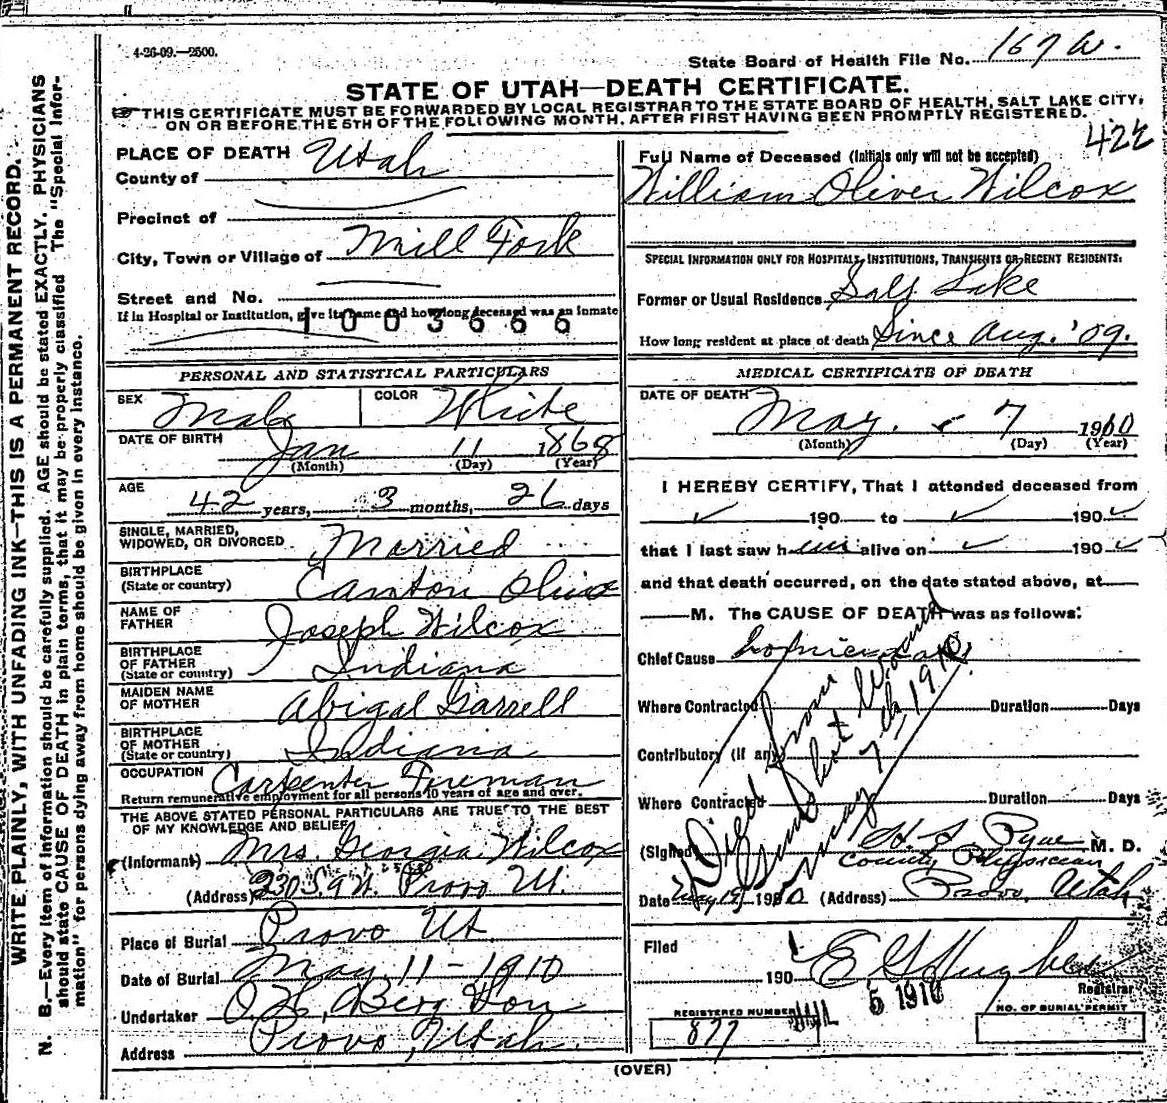 4-26-09.—2500.
State Board of Health File No. 167 W.
STATE OF UTAH—DEATH CERTIFICATE.
THIS CERTIFICATE MUST BE FORWARDED BY LOCAL REGISTRAR TO THE STATE BOARD OF HEALTH, SALT LAKE CITY,
ON OR BEFORE THE 5TH OF THE FOLLOWING MONTH, AFTER FIRST HAVING BEEN PROMPTLY REGISTERED.
WRITE PLAINLY, WITH UNFADING INK—THIS IS A PERMANENT RECORD.
N. B.—Every item of information should be carefully supplied. AGE should be stated EXACTLY. PHYSICIANS
should state CAUSE OF DEATH in plain terms, that it may be properly classified. The "Special Infor-
mation" for persons dying away from home should be given in every instance.
PLACE OF DEATH
County of Utah
Precinct of
City, Town or Village of Mill Fork
Street and No.
If in Hospital or Institution, give its name and how long deceased was an inmate
1003666
PERSONAL AND STATISTICAL PARTICULARS
SEX Male COLOR White
DATE OF BIRTH Jan 11 1868
(Month) (Day) (Year)
AGE 42 years, 3 months, 26 days
SINGLE, MARRIED,
WIDOWED, OR DIVORCED Married
BIRTHPLACE
(State or country) Canton Ohio
NAME OF
FATHER Joseph Wilcox
BIRTHPLACE
OF FATHER
(State or country) Indiana
MAIDEN NAME
OF MOTHER Abigal Garrell
BIRTHPLACE
OF MOTHER
(State or country) Indiana
OCCUPATION Carpenter Foreman
Return remunerative employment for all persons 10 years of age and over.
THE ABOVE STATED PERSONAL PARTICULARS ARE TRUE TO THE BEST
OF MY KNOWLEDGE AND BELIEF
(Informant) Mrs. Georgia Wilcox
(Address) 230 S. 9 W. Provo Ut.
Place of Burial Provo Ut.
Date of Burial May 11-1910
Undertaker Berg Son
Address Provo, Utah.
Full Name of Deceased (Initials only will not be accepted)
William Oliver Wilcox
SPECIAL INFORMATION ONLY FOR HOSPITALS, INSTITUTIONS, TRANSIENTS OR RECENT RESIDENTS:
Former or Usual Residence Salt Lake
How long resident at place of death Since Aug. '09.
MEDICAL CERTIFICATE OF DEATH
DATE OF DEATH May 7 1910
(Month) (Day) (Year)
I HEREBY CERTIFY, That I attended deceased from
190 to 190
that I last saw him alive on 190
and that death occurred, on the date stated above, at
M. The CAUSE OF DEATH was as follows:
Chief Cause
Where Contracted Duration Days
Contributory (if any)
Where Contracted Duration Days
Died from
Gun shot Wound
May 7th 1910
(Signed) M. D.
County Physician
Date May 1910 (Address) Provo, Utah
Filed 190
Registrar
5 1910
REGISTERED NUMBER
877
NO. OF BURIAL PERMIT
(OVER)